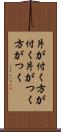 片が付く方が
付く片がつく
方がつく